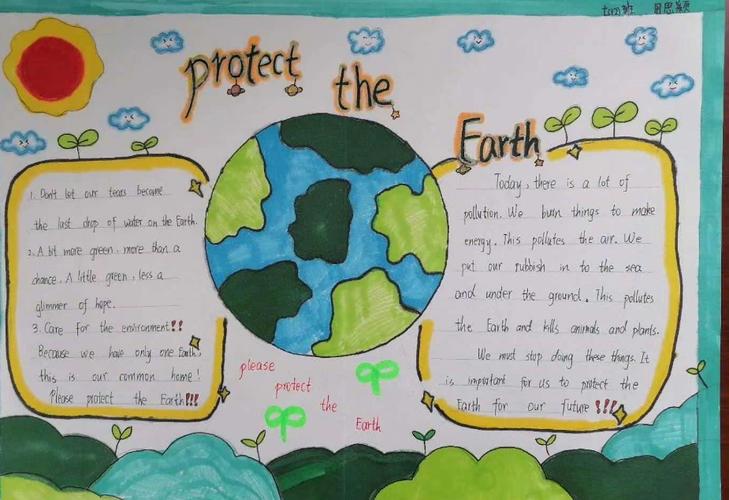 七(12)班 周思颖
protect the
Earth
1. Don't let our tears become
the last drop of water on the Earth.
2. A bit more green, more than a
chance. A little green, less a
glimmer of hope.
3. Care for the environment!!
Because we have only one Earth,
this is our common home!
Please protect the Earth!!!
please
protect
the
Earth
Today, there is a lot of
pollution. We burn things to make
energy. This pollutes the air. We
put our rubbish in to the sea
and under the ground. This pollutes
the Earth and kills animals and plants.
We must stop doing these things. It
is important for us to protect the
Earth for our future!!!